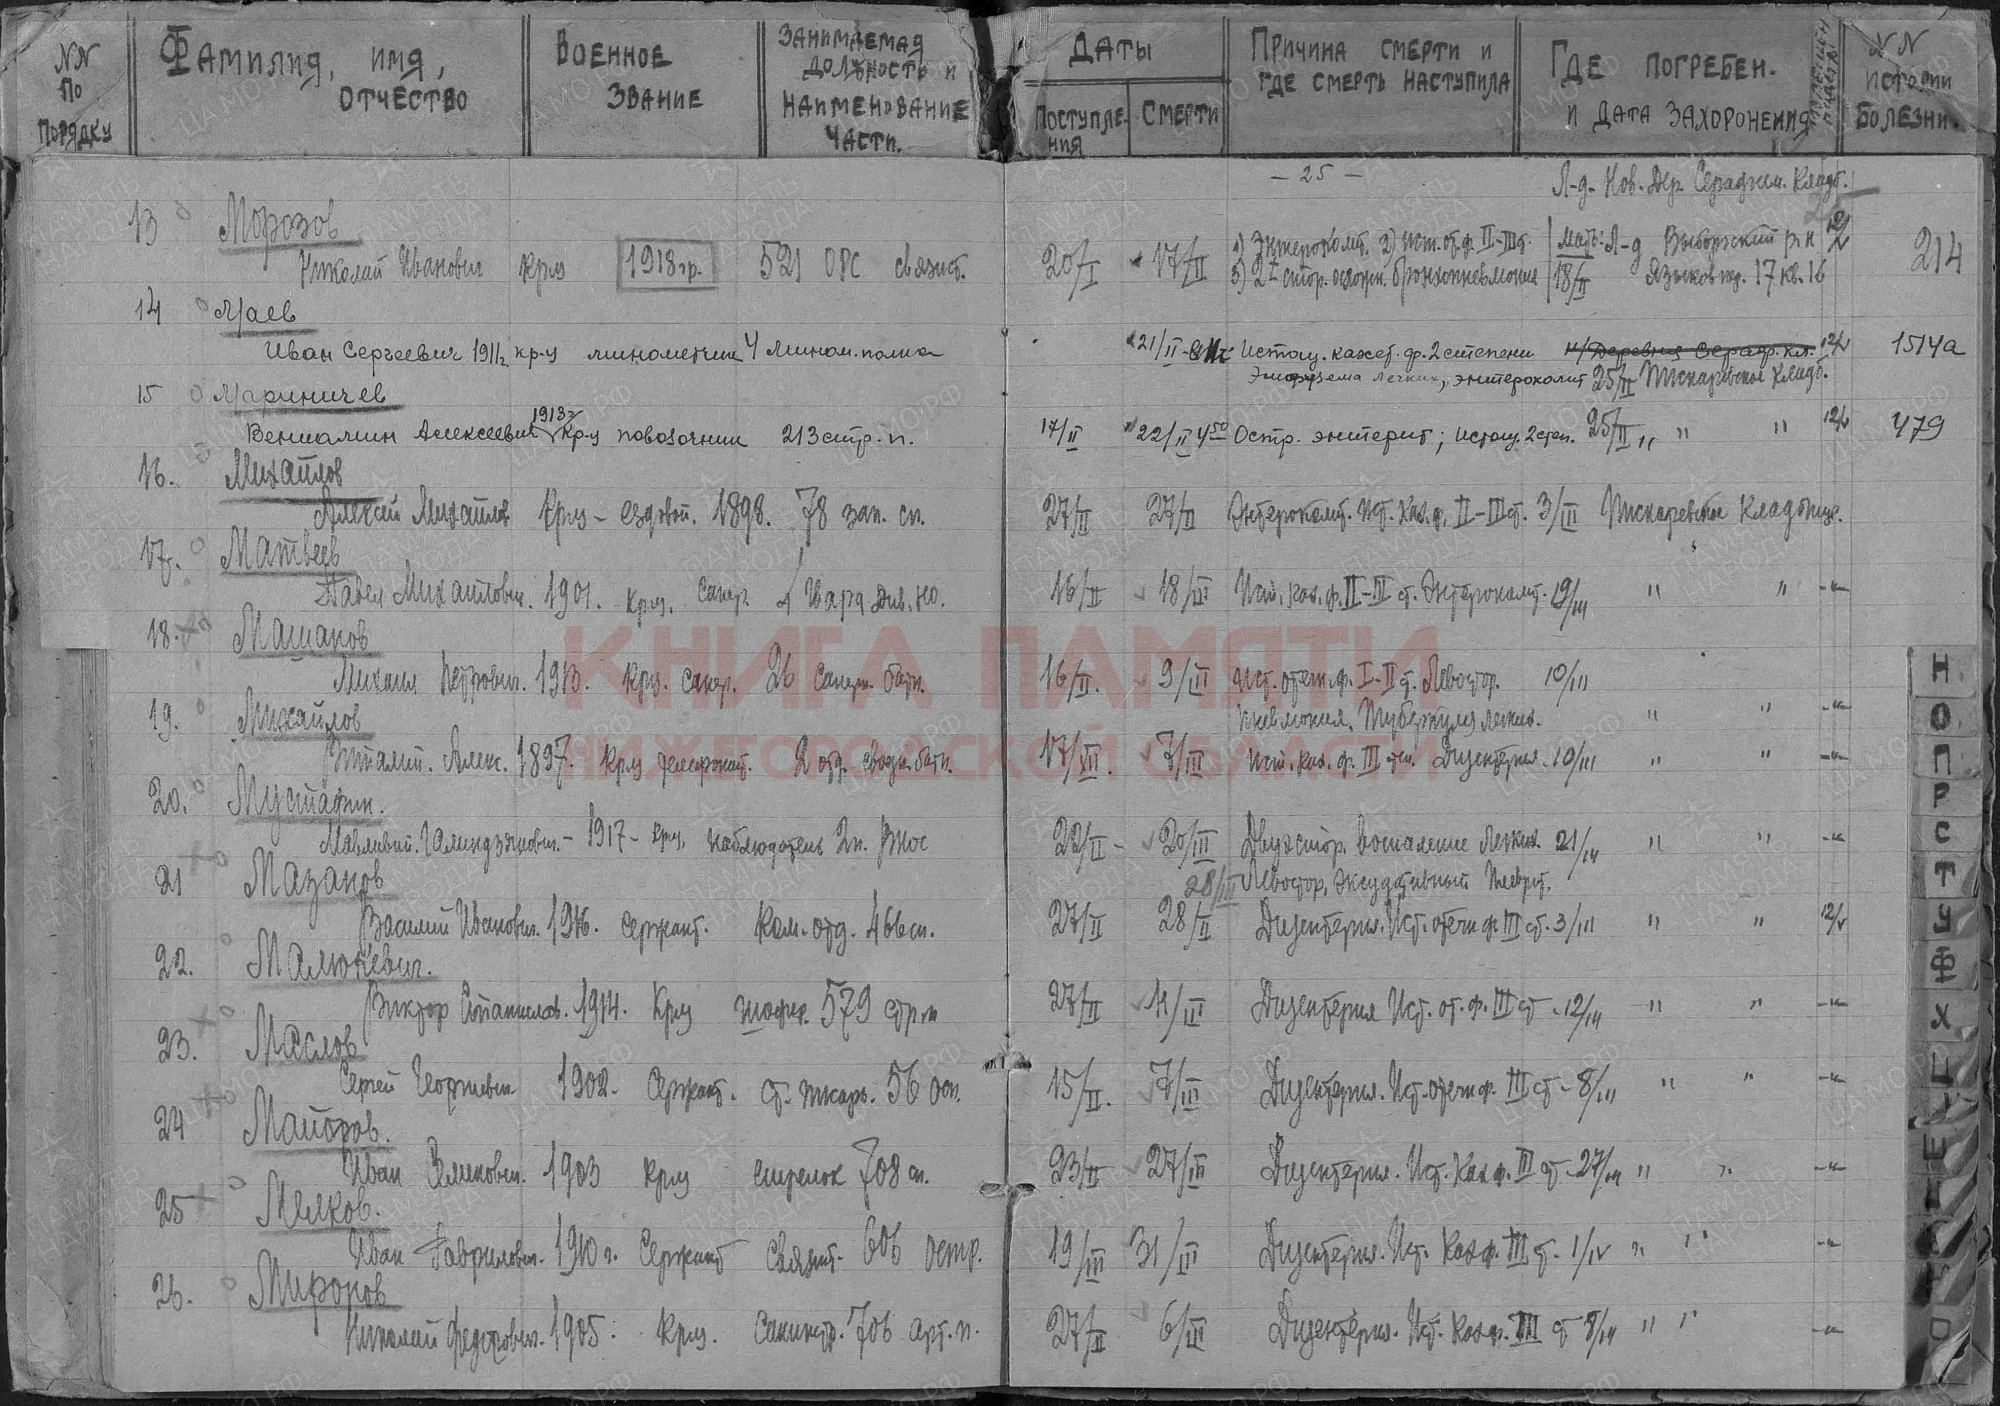 NN По Порядку
Фамилия, имя, отчество
Военное звание
Занимаемая должность и наименование части.
Даты
Поступления
Смерти
Причина смерти и где смерть наступила
Где погребен. и дата захоронения
NN истории болезни.
- 25 -
Л-д. Нов. Дер. Серафим. Кладб.
13 Морозов
Николай Иванович кр-ц 1918 гр. 521 ОРС связист. 20/I 17/II 1) Энтероколит. 2) ист. от. ф. II-III ст. мать: Л-д Выборгский р-н 12/V 214
3) 2х стор. бронхопневмония 18/II Языков пер. 17 кв. 16
14 Маев
Иван Сергеевич 1911г. кр-ц минометчик 4 мином. полка 21/II Истощ. кахет. ф. 2 степени Деревня Серафр. кл. 12/V 1514а
Эмфизема легких, энтероколит 25/II Пискаревское кладб.
15 Мариничев
Вениамин Алексеевич 1913г. кр-ц повозочник 213 стр. п. 17/II 22/II 4 50 Остр. энтерит; истощ. 2 степ. 25/II " " " 12/V 479
16. Михайлов
Алексей Михайлов крц - ездовой. 1898. 78 зап. сп. 27/II 27/II Энтероколит. Ист. Ках. ф. II-III ст. 3/III Пискаревское Кладбище.
17. Матвеев
Павел Михайлович. 1901. крц. сапер. 16/II 18/III Ист. ках. ф. II-III ст. Энтероколит. 19/III " " -"-
18. Машаков
Михаил Петрович. 1913. крц. сапер. 26 саперн. батн. 16/II. 9/III Ист. отечн. ф. I-II ст. Левостор. 10/III
пневмония. Туберкулез легких. " " -"-
19. Михайлов
Виталий. Алек. 1897. крц телефонист. 2 отд. сводн. батн. 17/III. 7/III Ист. ках. ф. III ст. Дизентерия. 10/III " " -"-
20. Мустафин.
1917 - крц. наблюдатель 2п. Внос 22/II - 20/III Двухстор. воспаление легких. 21/III " " -"-
28/III Левостор. эксудативный плеврит.
21 Мазанов
Василий Иванович. 1916. сержант. Ком. отд. 466 сп. 27/II 28/II Дизентерия. Ист. отечн ф. III ст. 3/III " " 12/V
22. Малюкевич.
Виктор Станислав. 1914. Крц шофер. 579 стр. п 27/II 11/III Дизентерия Ист. от. ф. III ст - 12/III " " -"-
23. Маслов
Сергей Георгиевич. 1902. Сержант. Ст. писарь. 56 осп. 15/II. 7/III Дизентерия. Ист. отечн ф. III ст - 8/III " " -"-
24 Майоров.
Иван 1903 крц стрелок 708 сп. 23/II 27/III Дизентерия. Ист. Ках ф. III ст - 27/III " " -"-
25 Мелков.
Иван Гаврилович. 1910 г. Сержант Связист. 606 остр. 19/III 31/III Дизентерия. Ист. Ках ф. III ст. 1/IV " " -"-
26. Миронов
Николай Федорович. 1905. Крц. Санинстр. 706 арт. п. 27/II 6/III Дизентерия. Ист. Ках ф. III ст 8/III " " -"-
Н
О
П
Р
С
Т
У
Ф
Х
Ц
КНИГА ПАМЯТИ
НИЖЕГОРОДСКОЙ ОБЛАСТИ